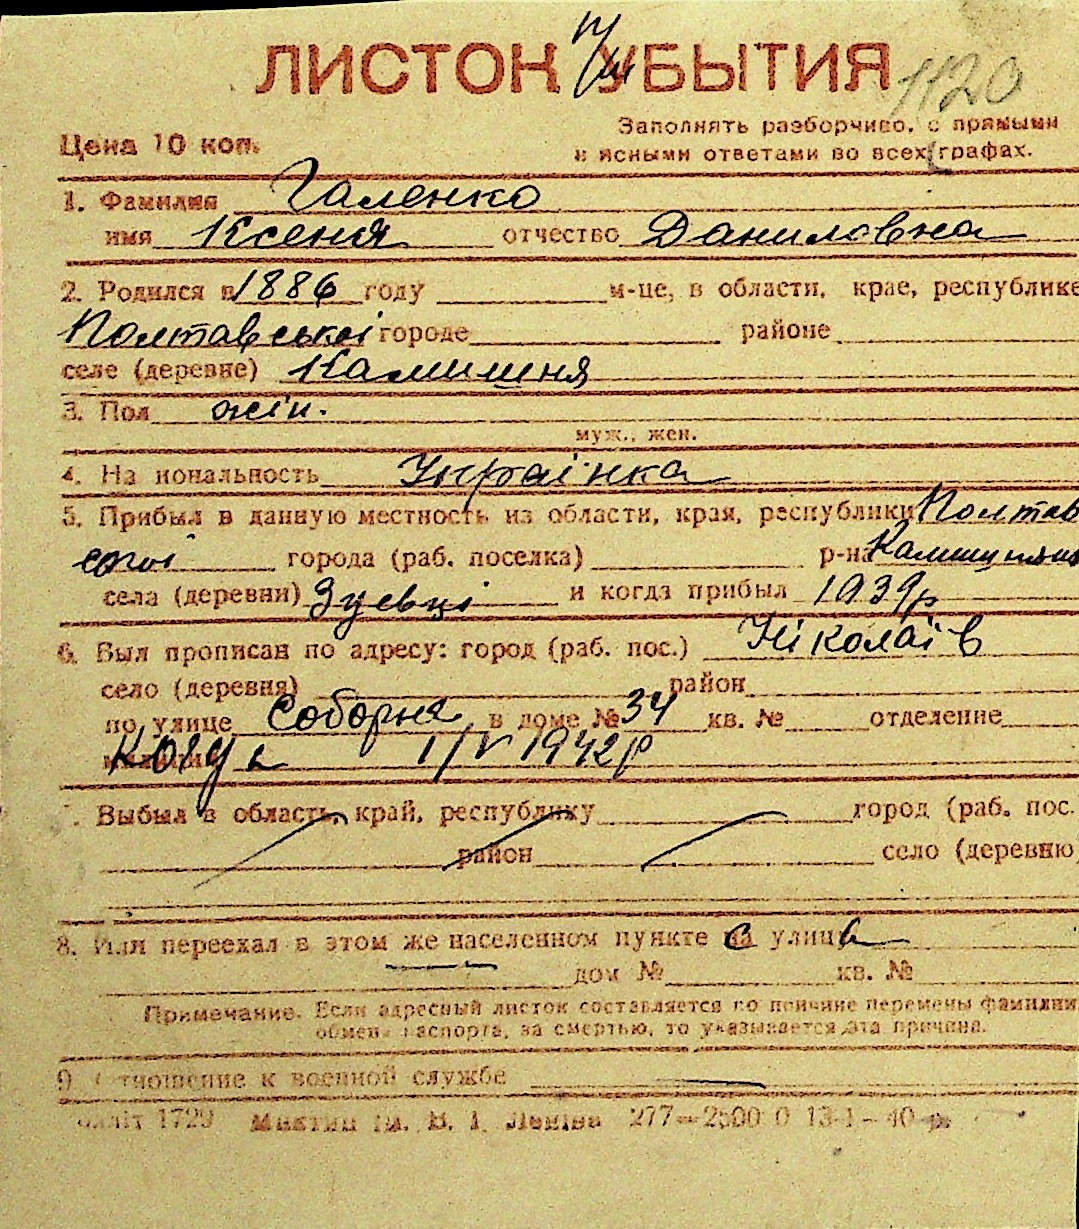 ЛИСТОК УБЫТИЯ
1120
Цена 10 коп.
Заполнять разборчиво, с прямыми
и ясными ответами во всех графах.
1. Фамилия Галенко
имя Ксеня отчество Даниловна
2. Родился в 1886 году м-це, в области, крае, республике
Полтавської городе районе
селе (деревне) Камишня
3. Пол жін.
муж., жен.
4. Национальность Українка
5. Прибыл в данную местность из области, края, республики Полтав
ської города (раб. поселка) р-на
села (деревни) Зуевці и когда прибыл 1939р
6. Был прописан по адресу: город (раб. пос.) Ніколаів
село (деревня) район
по улице Соборна в доме № 34 кв. № отделение
милиции 1/V 1942р
7. Выбыл в область, край, республику город (раб. пос.
район село (деревню
8. Или переехал в этом же населенном пункте на улицу
дом № кв. №
Примечание. Если адресный листок составляется по причине перемены фамилии,
обмена паспорта, за смертью, то указывается эта причина.
9. Отношение к военной службе
1729 ім. В. І. Леніна 277—2500 0 13-1-40 р.